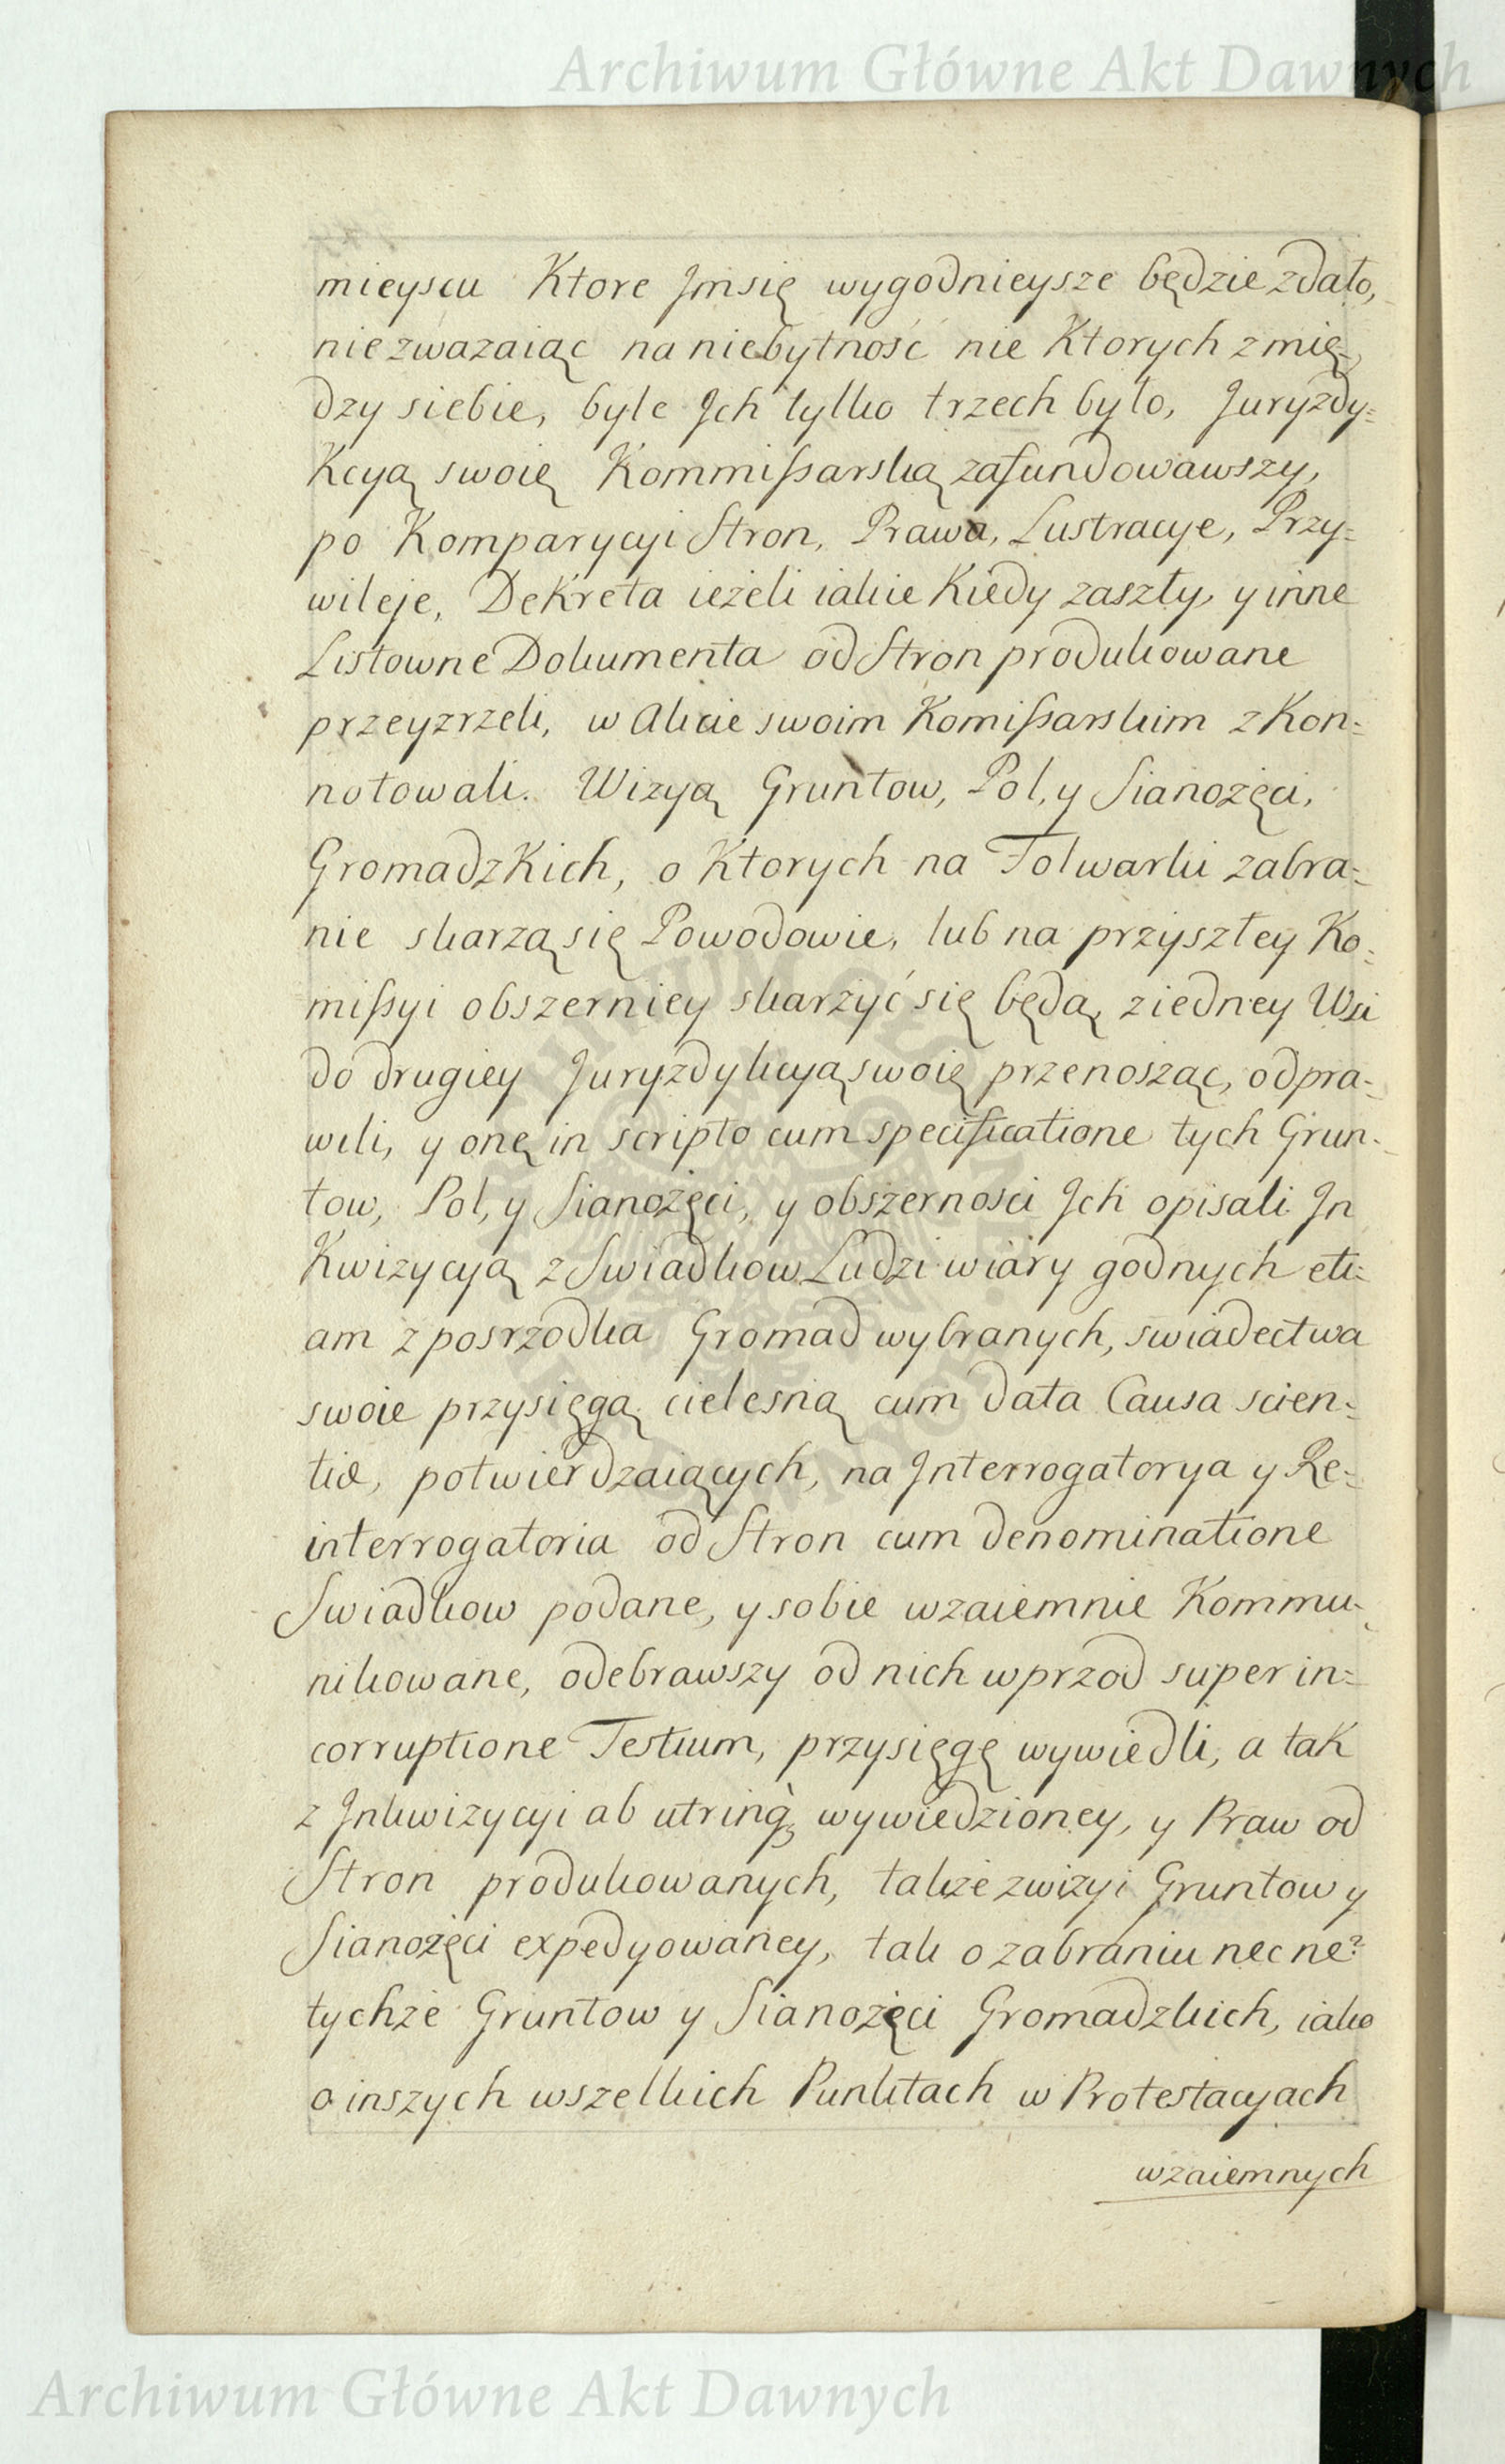 Archiwum Główne Akt Dawnych
mieyscu Ktore Jmsię wygodnieysze będzie zdało,
niezwazaiąc na niebytność nie Ktorych z mię-
dzy siebie, byle Jch tylko trzech było, Juryzdy=
Kcyą swoię Kommißarską zafundowawszy,
po Komparycyi Stron, Prawa, Lustracye, Przy=
wileje, DeKreta ieżeli iakie Kiedy zaszły, y inne
Listowne Dokumenta od Stron produkowane
przeyzrzeli, w Akcie swoim Komißarskim z Kon=
notowali. Wizyą Gruntow, Pol, y Sianożęci,
GromadzKich, o Ktorych na Folwarki zabra=
nie skarzą się Powodowie, lub na przyszłey Ko=
mißyi obszerniey skarżyć się będą, z iedney Wsi
do drugiey Juryzdykcyą swoię przenosząc, odpra=
wili, y onę in scripto cum specificatione tych Grun-
tow, Pol, y Sianożęci, y obszernosci Jch opisali Jn
Kwizycyą z Swiadkow Ludzi wiary godnych eti=
am z posrzodka Gromad wybranych, swiadectwa
swoie przysięgą cielesną cum data Causa scien=
tiæ, potwierdzaiących, na Jnterrogatorya y Re=
interrogatoria od Stron cum denominatione
Swiadkow podane, y sobie wzaiemnie Kommu-
nikowane, odebrawszy od nich wprzod super in=
corruptione Testium, przysięgę wywiedli, a taK
z Jnkwizycyi ab utrinq̀; wywiedzioney, y Praw od
Stron produkowanych, takze z wizyi Gruntow y
Sianożęci expedyowaney, tak o zabraniu nec ne?
tychże Gruntow y Sianożęci Gromadzkich, iako
o inszych wszelkich Punktach w Protestacyach
wzaiemnych
Archiwum Główne Akt Dawnych